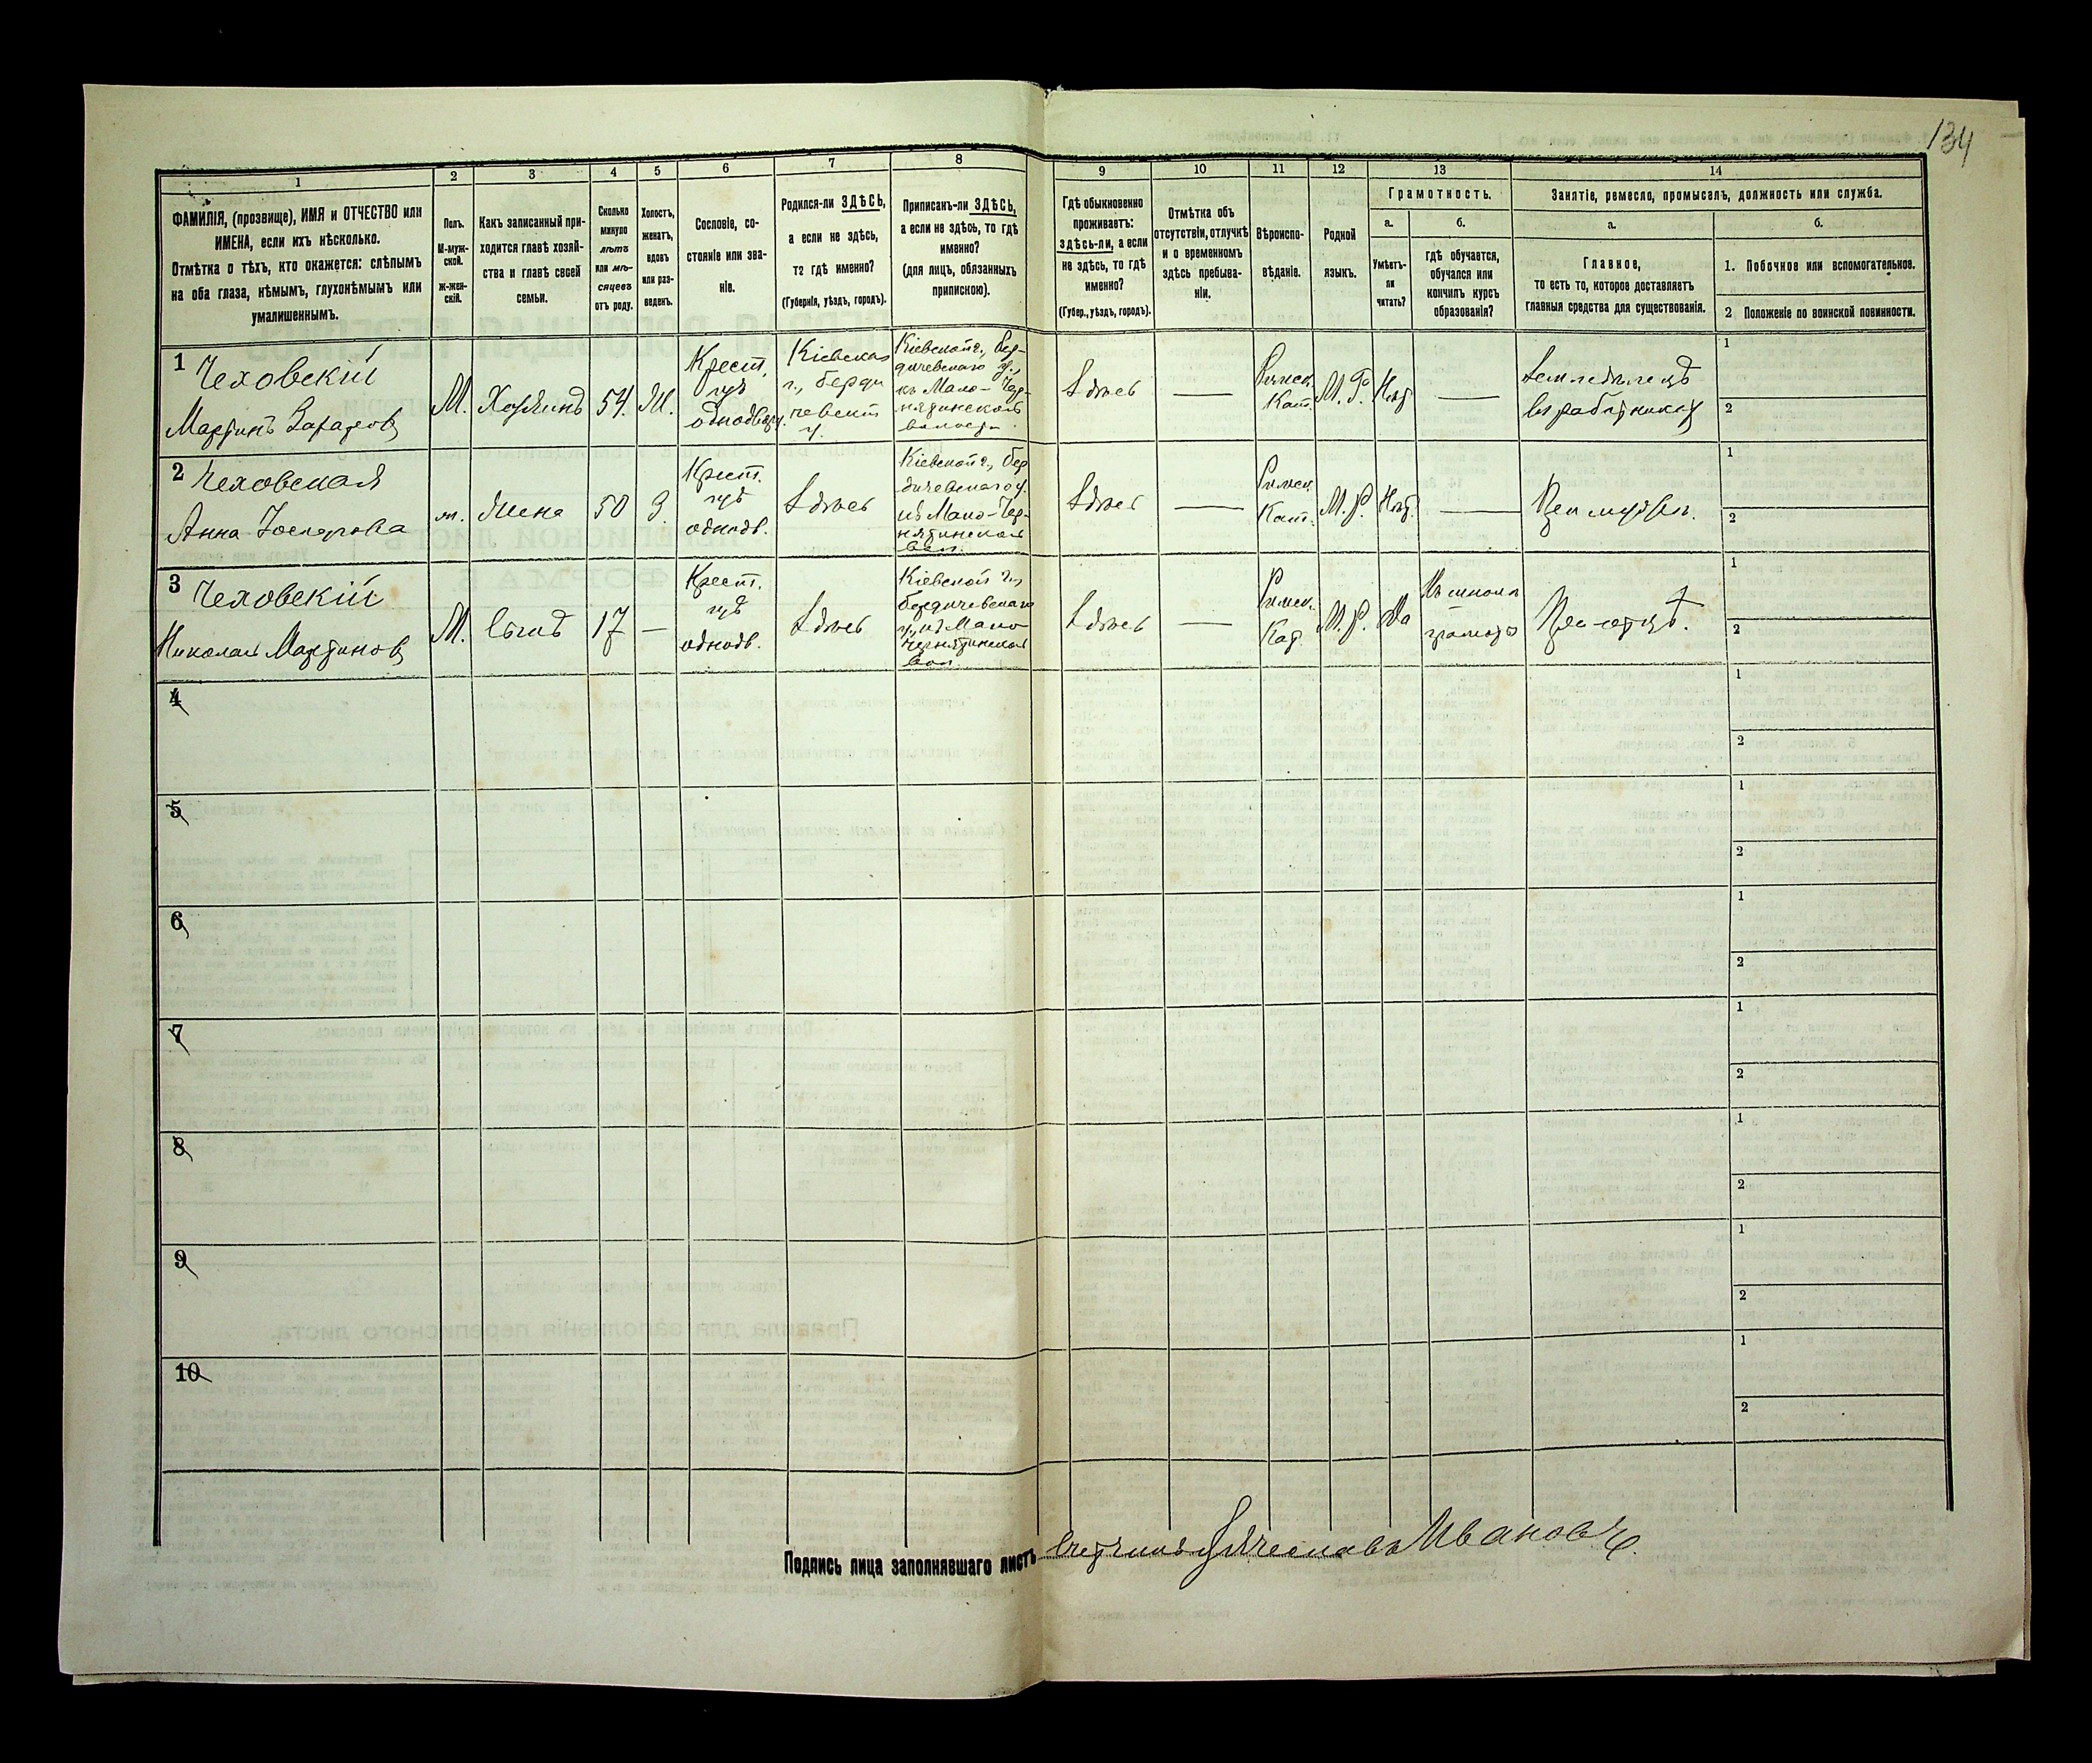 134
1
2
3
4
5
6
7
8
9
10
11
12
13
14
ФАМИЛІЯ, (прозвище), ИМЯ и ОТЧЕСТВО или
ИМЕНА, если ихъ нѣсколько.
Отмѣтка о тѣхъ, кто окажется: слѣпымъ
на оба глаза, нѣмымъ, глухонѣмымъ или
умалишеннымъ.
Полъ.
М-муж-
ской.
Ж-жен-
скій.
Какъ записанный при-
ходится главѣ хозяй-
ства и главѣ своей
семьи.
Сколько
минуло
лѣтъ
или мѣ-
сяцевъ
отъ роду.
Холостъ,
женатъ,
вдовъ
или раз-
веденъ.
Сословіе, со-
стояніе или зва-
ніе.
Родился-ли ЗДѢСЬ,
а если не здѣсь,
то гдѣ именно?
(Губернія, уѣздъ, городъ).
Приписанъ-ли ЗДѢСЬ,
а если не здѣсь, то гдѣ
именно?
(для лицъ, обязанныхъ
припискою).
Гдѣ обыкновенно
проживаетъ:
здѣсь-ли, а если
не здѣсь, то гдѣ
именно?
(Губер., уѣздъ, городъ).
Отмѣтка объ
отсутствіи, отлучкѣ
и о временномъ
здѣсь пребыва-
ніи.
Вѣроиспо-
вѣданіе.
Родной
языкъ.
Грамотность.
а.
б.
Умѣетъ-
ли
читать?
гдѣ обучается,
обучался или
кончилъ курсъ
образованія?
Занятіе, ремесло, промыселъ, должность или служба.
а.
б.
Главное,
то есть то, которое доставляетъ
главныя средства для существованія.
1. Побочное или вспомогательное.
2 Положеніе по воинской повинности.
1
Чеховскій
Мартинъ
М.
Хозяинъ
54.
Ж.
Крест.
изъ
однодворц.
Кіевская
г., Берди
чевскаго
у.
Кіевской г., Бер-
дичевскаго у.,
къ Мало-Чер-
нятинской
волости
Здѣсь
—
Римск.
Кат.
М. Р.
Нѣтъ
—
Земледѣлецъ
въ работникахъ
1
2
2
Чеховская
Анна
ж.
Жена
50
З.
Крест.
изъ
однодв.
Здѣсь
Кіевской г., Бер
дичевскаго у.
къ Мало-Чер-
нятинской
вол.
Здѣсь
—
Римск.
Кат.
М. Р.
Нѣтъ
—
При мужѣ.
1
2
3
Чеховскій
Николай Мартиновъ
М.
Сынъ
17
—
Крест.
изъ
однодв.
Здѣсь
Кіевской г.,
Бердичевскаго
у., къ Мало
Чернятинской
вол.
Здѣсь
—
Римск.
Кат.
М. Р.
Да
Въ школѣ
грамоты
При отцѣ.
1
2
4
1
2
5
1
2
6
1
2
7
1
2
8
1
2
9
1
2
10
1
2
Подпись лица заполнявшаго листъ
Счетчикъ Ивановъ